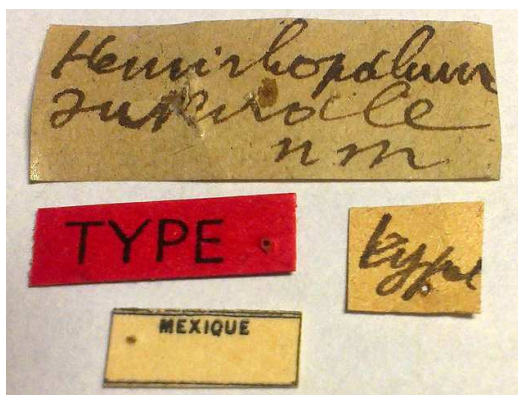 Hemirhopalum
suturale
n m
TYPE
type
MEXIQUE